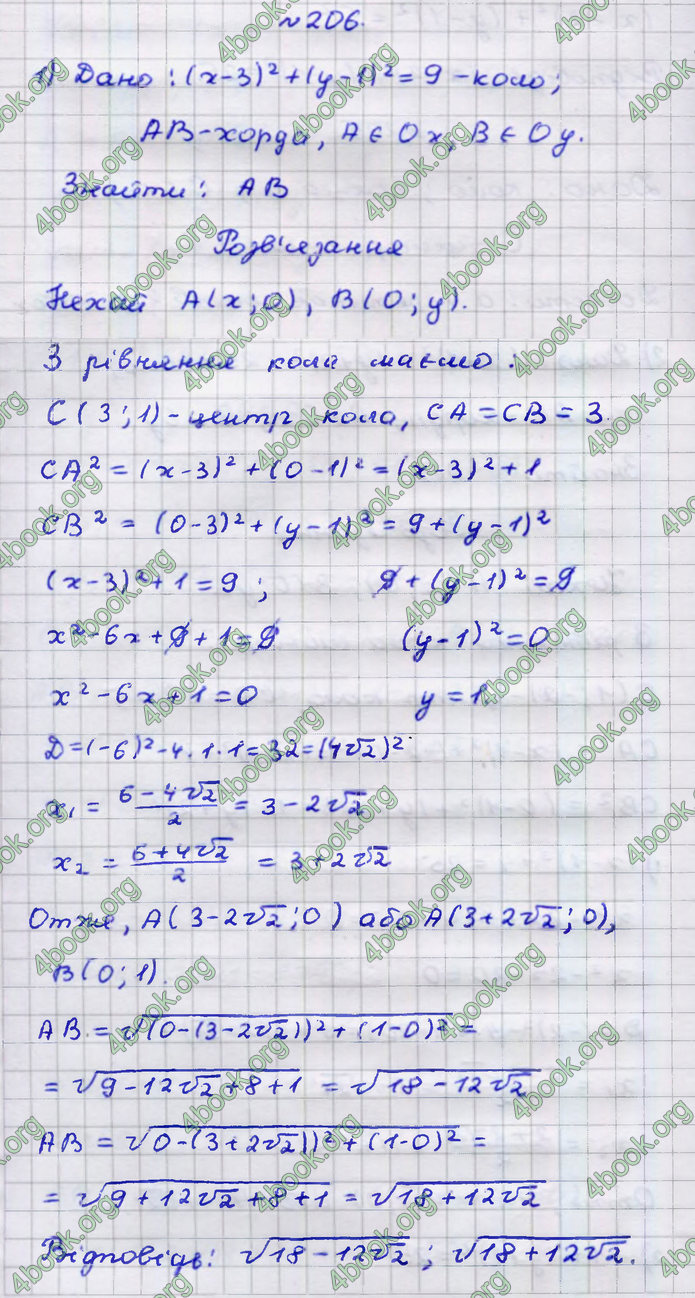 №206.
1) Дано: (x-3)² + (y-1)² = 9 - коло;
AB - хорда, A ∈ Ox, B ∈ Oy.
Знайти: AB
Розв'язання
Нехай A(x; 0), B(0; y).
З рівняння кола маємо:
C(3; 1) - центр кола, CA = CB = 3.
CA² = (x-3)² + (0-1)² = (x-3)² + 1
CB² = (0-3)² + (y-1)² = 9 + (y-1)²
(x-3)² + 1 = 9; 9 + (y-1)² = 9
x² - 6x + 9 + 1 = 9 (y-1)² = 0
x² - 6x + 1 = 0 y = 1.
D = (-6)² - 4·1·1 = 32 = (4√2)².
x₁ = (6 - 4√2)/2 = 3 - 2√2
x₂ = (6 + 4√2)/2 = 3 + 2√2
Отже, A(3-2√2; 0) або A(3+2√2; 0),
B(0; 1).
AB = √((0-(3-2√2))² + (1-0)²) =
= √(9 - 12√2 + 8 + 1) = √(18 - 12√2)
AB = √(0-(3+2√2))² + (1-0)² =
= √(9 + 12√2 + 8 + 1) = √(18 + 12√2)
Відповідь: √(18 - 12√2); √(18 + 12√2).
4book.org